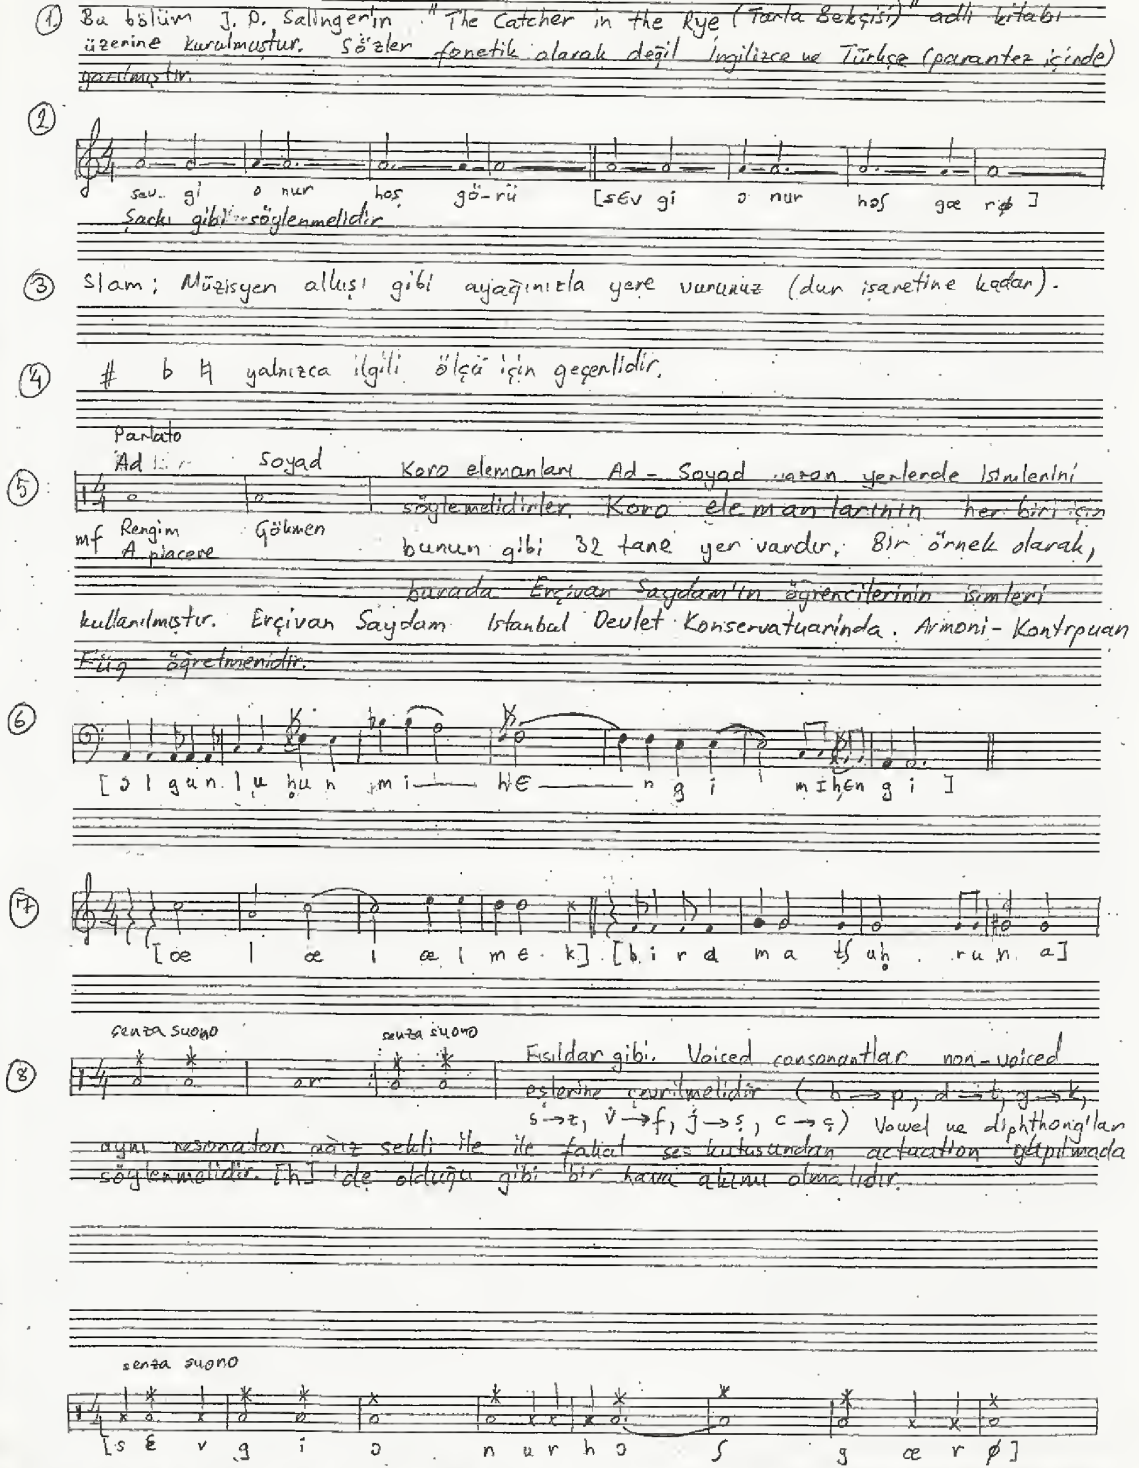 ① Bu bölüm J. D. Salinger'in "The Catcher in the Rye (Tarla Bekçisi)" adlı kitabı
üzerine kurulmuştur. Sözler fonetik olarak değil İngilizce ve Türkçe (parantez içinde)
yazılmıştır.
②
4/4
sev- gi o nur hoş gö-rü [sɛv gi ɔ nur hɔʃ gœ rø ]
Şarkı gibi söylenmelidir
③ Slam; Müzisyen alkışı gibi ayağınızla yere vurunuz (dur işaretine kadar).
④ # b ♮ yalnızca ilgili ölçü için geçerlidir.
Parlato
Ad Soyad Koro elemanları Ad - Soyad yazan yerlerde isimlerini
⑤ söylemelidirler. Koro elemanlarının her biri için
mf Rengim Gökmen bunun gibi 32 tane yer vardır. Bir örnek olarak,
A piacere
burada Erçivan Saydam'ın öğrencilerinin isimleri
kullanılmıştır. Erçivan Saydam Istanbul Devlet Konservatuarinda Armoni - Kontrpuan
Füg öğretmenidir.
⑥
[ ɔ l gun l u hu n mi hɛ n g i mɪhɛn g i ]
⑦
4/4
[œ l œ l œ l m ɛ k] [b i r d a m a tʃ uh r u n a]
senza suono senza suono
⑧ Fısıldar gibi. Voiced consonantlar non-voiced
or
eşlerine çevrilmelidir ( b → p, d → t, g → k,
s → z, v → f, j → ş, c → ç) Vowel ve diphthong'lar
aynı resonator ağız şekli ile ile fakat ses kutusundan actuation yapılmada
söylenmelidir. [h] 'de olduğu gibi bir hava akımı olmalıdır.
senza suono
[s ɛ v g i ɔ n u r h ɔ ʃ g œ r ø]